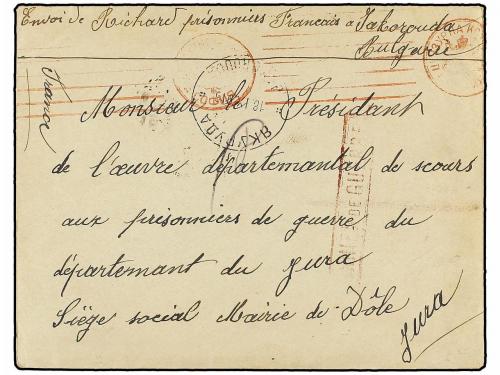 Envoi de Richard prisonniers Francais a Jakorouda
Bulgarie
France
Monsieur le Présidant
de l'œuvre départemantal de scours
aux prisonniers de guerre du
départemant du Jura
Siège social Mairie de Dôle
Jura
ЯКОРУДА
DE GUERRE